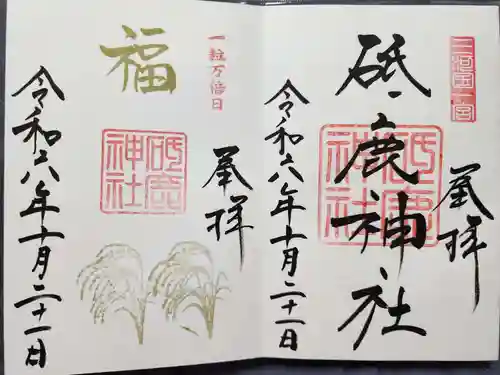 三河国一宮
奉拝
砥鹿神社
砥鹿神社
令和六年十月二十一日
一粒万倍日
奉拝
福
砥鹿神社
令和六年十月二十一日